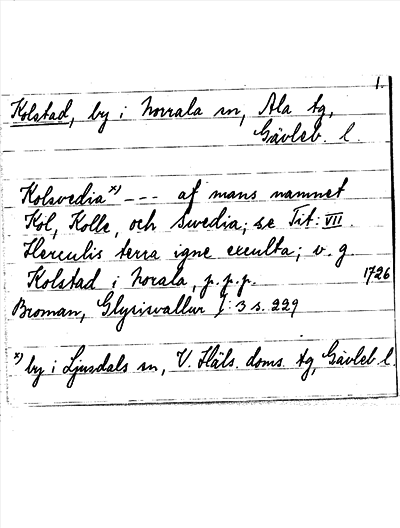 1.
Kolstad, by i Norrala sn, Ala tg,
Gävleb. l.
Kolsvedia x) --- af mans namnet
Kol, Kolle, och Swedia; se Tit: VII.
Herculis terra igne exculta; v. g.
Kolstad i Norala, p.p.p. 1726
Broman, Glysisvallur f: 3 s. 229
x) by i Ljusdals sn, V. Häls. doms. tg, Gävleb l.